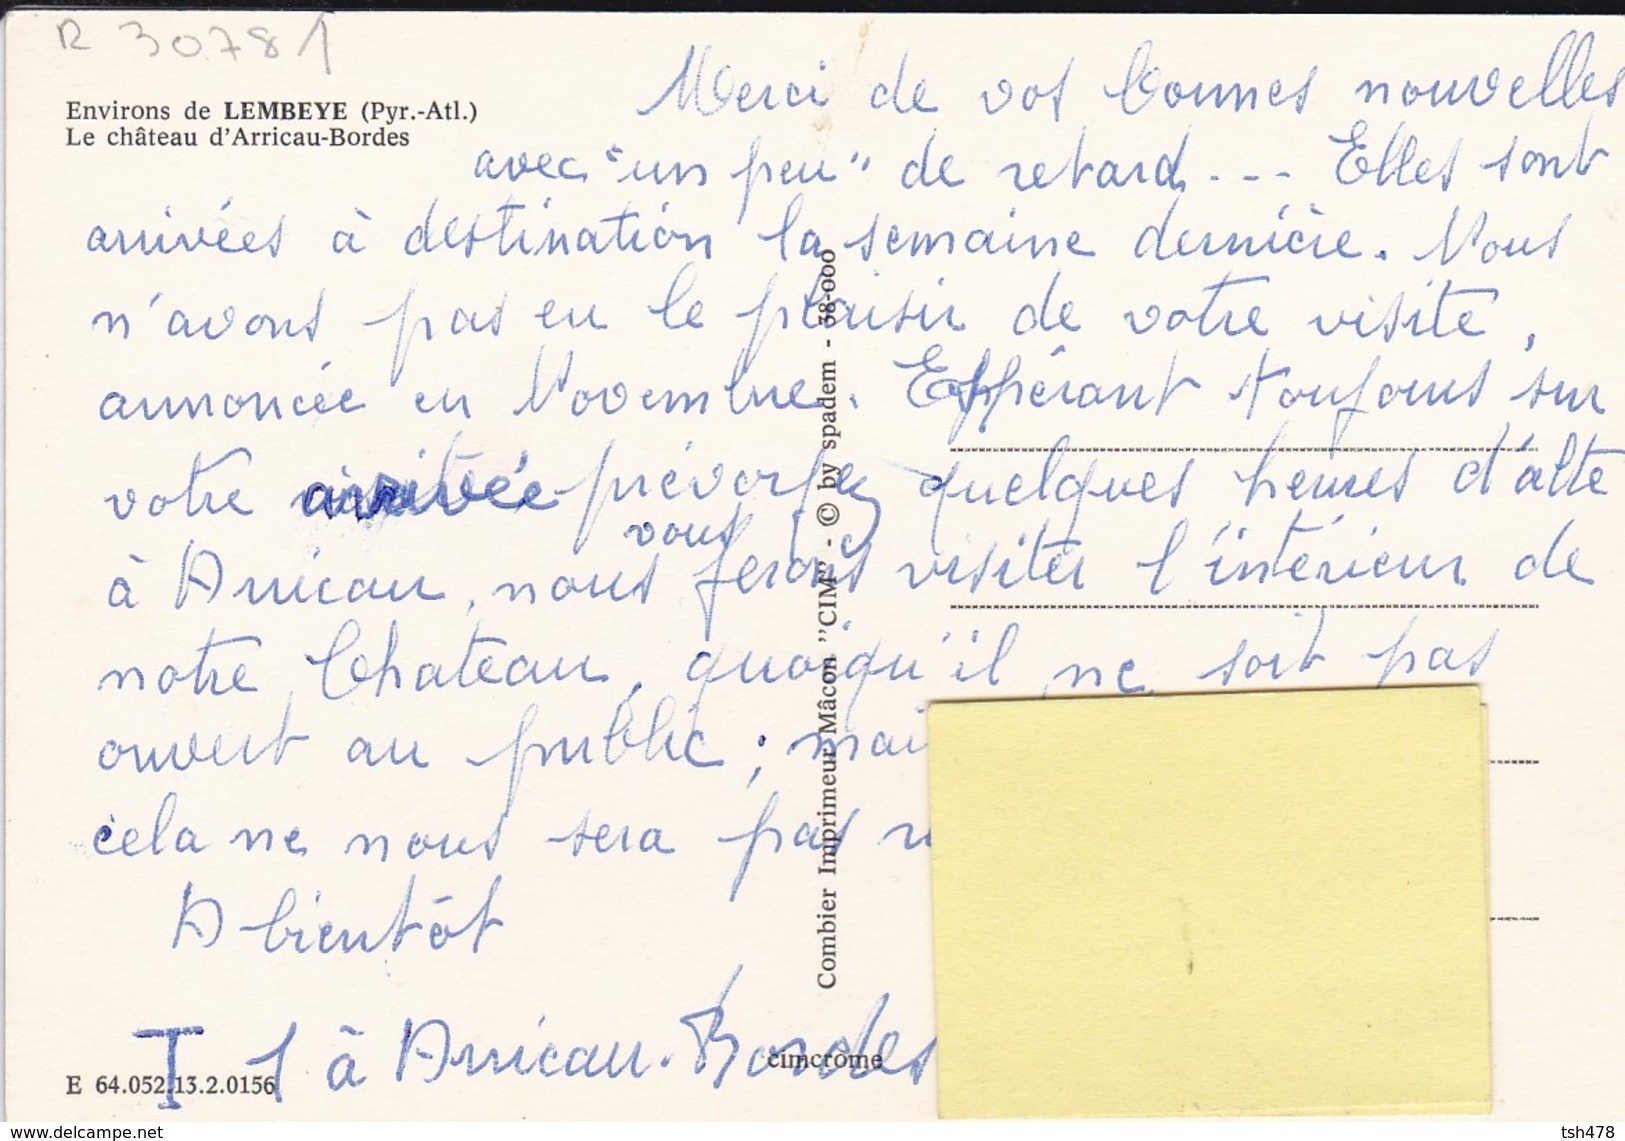 R 30781
Environs de LEMBEYE (Pyr.-Atl.)
Le château d'Arricau-Bordes
Merci de vos bonnes nouvelles
avec "un peu" de retard... Elles sont
arrivées à destination la semaine dernière. Nous
n'avons pas eu le plaisir de votre visite,
annoncée en Novembre. Espérant toujours sur
votre arrivée prévoyez quelques heures d'alte
à Arricau, nous vous ferons visiter l'intérieur de
notre Château, quoiqu'il ne soit pas
ouvert au public; mai
cela ne nous sera pas
A bientôt
T 1 à Arricau-Bordes
Combier Imprimeur Mâcon "CIM" - © by spadem - 38-000
cimcrome
E 64.052.13.2.0156
https://www.delcampe.net
tsh478